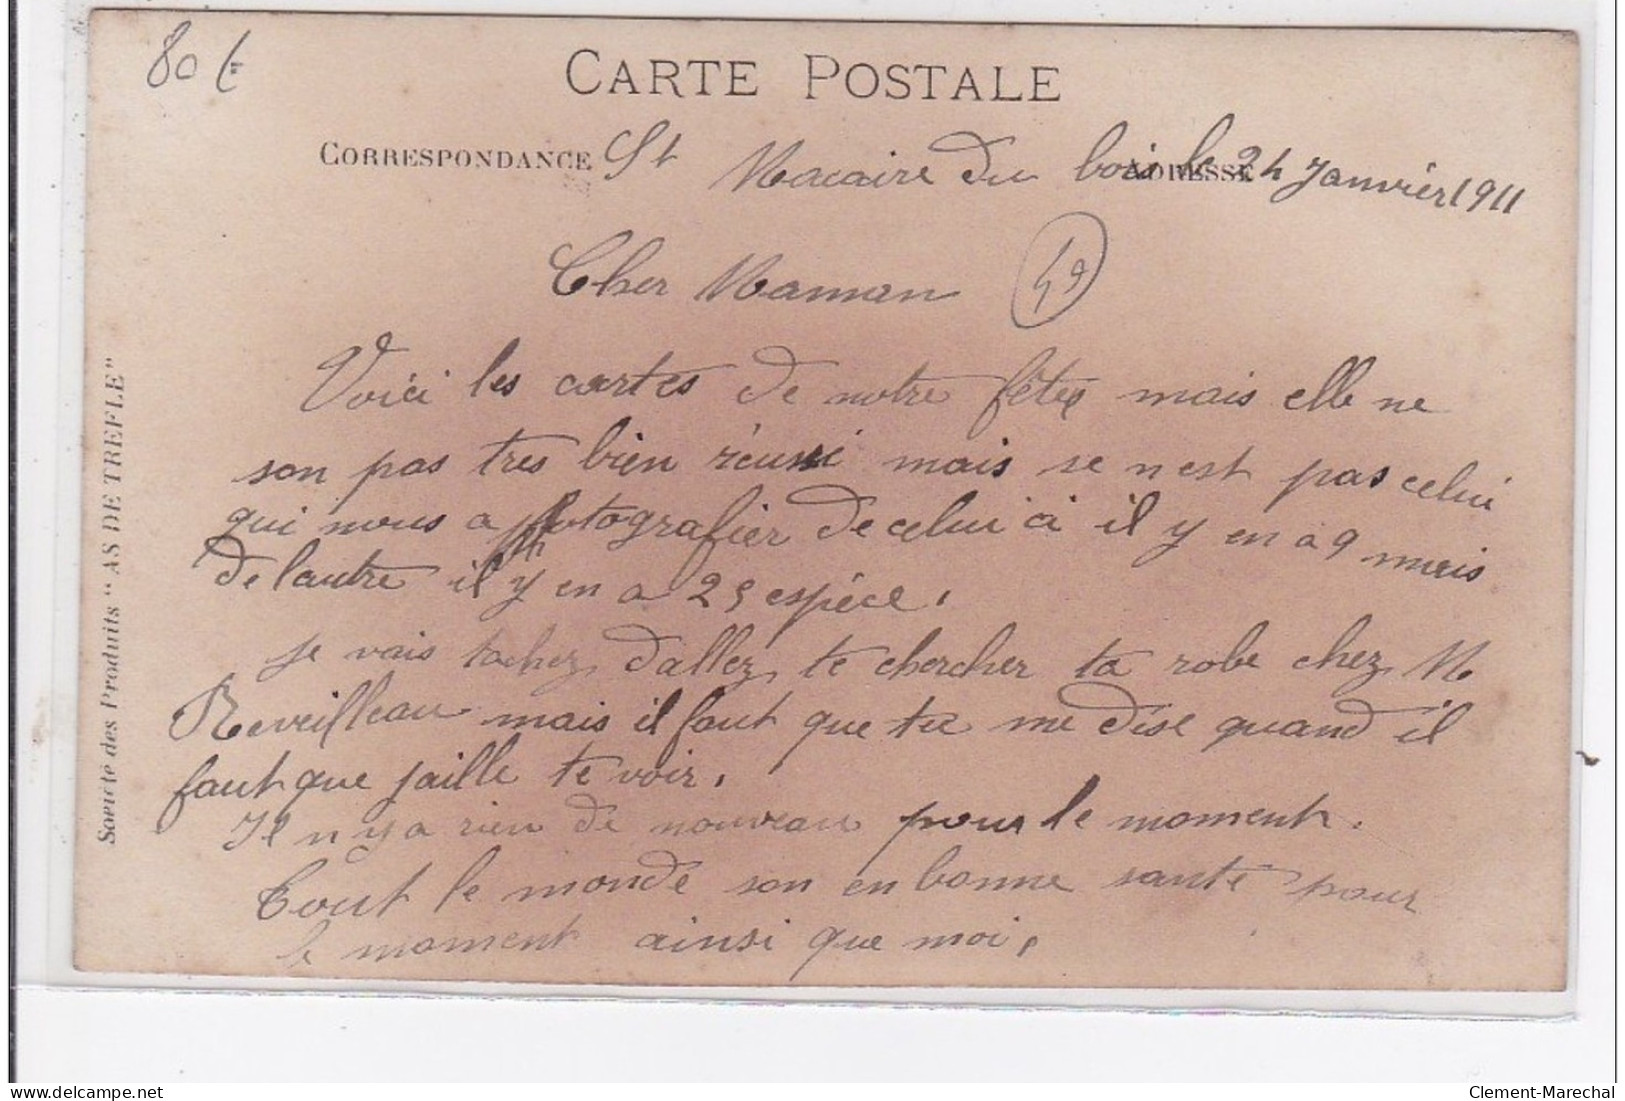 80 €
CARTE POSTALE
CORRESPONDANCE
ADRESSE
St Macaire Du bois le 24 Janvier 1911
Cher Maman
49
Voici les cartes de notre fête mais elle ne
son pas tres bien réussi mais se n est pas celui
qui nous a photografier de celui ci il y en a 9 mais
de lautre il y en a 25 espéce.
je vais tachez dallez te chercher ta robe chez M
Reveilleau mais il faut que tu me dise quand il
faut que jaille te voir.
Il n y a rien de nouveau pour le moment.
Tout le monde son en bonne santé pour
le moment ainsi que moi.
Société des Produits "AS DE TREFLE"
delcampe.net
Clement-Marechal